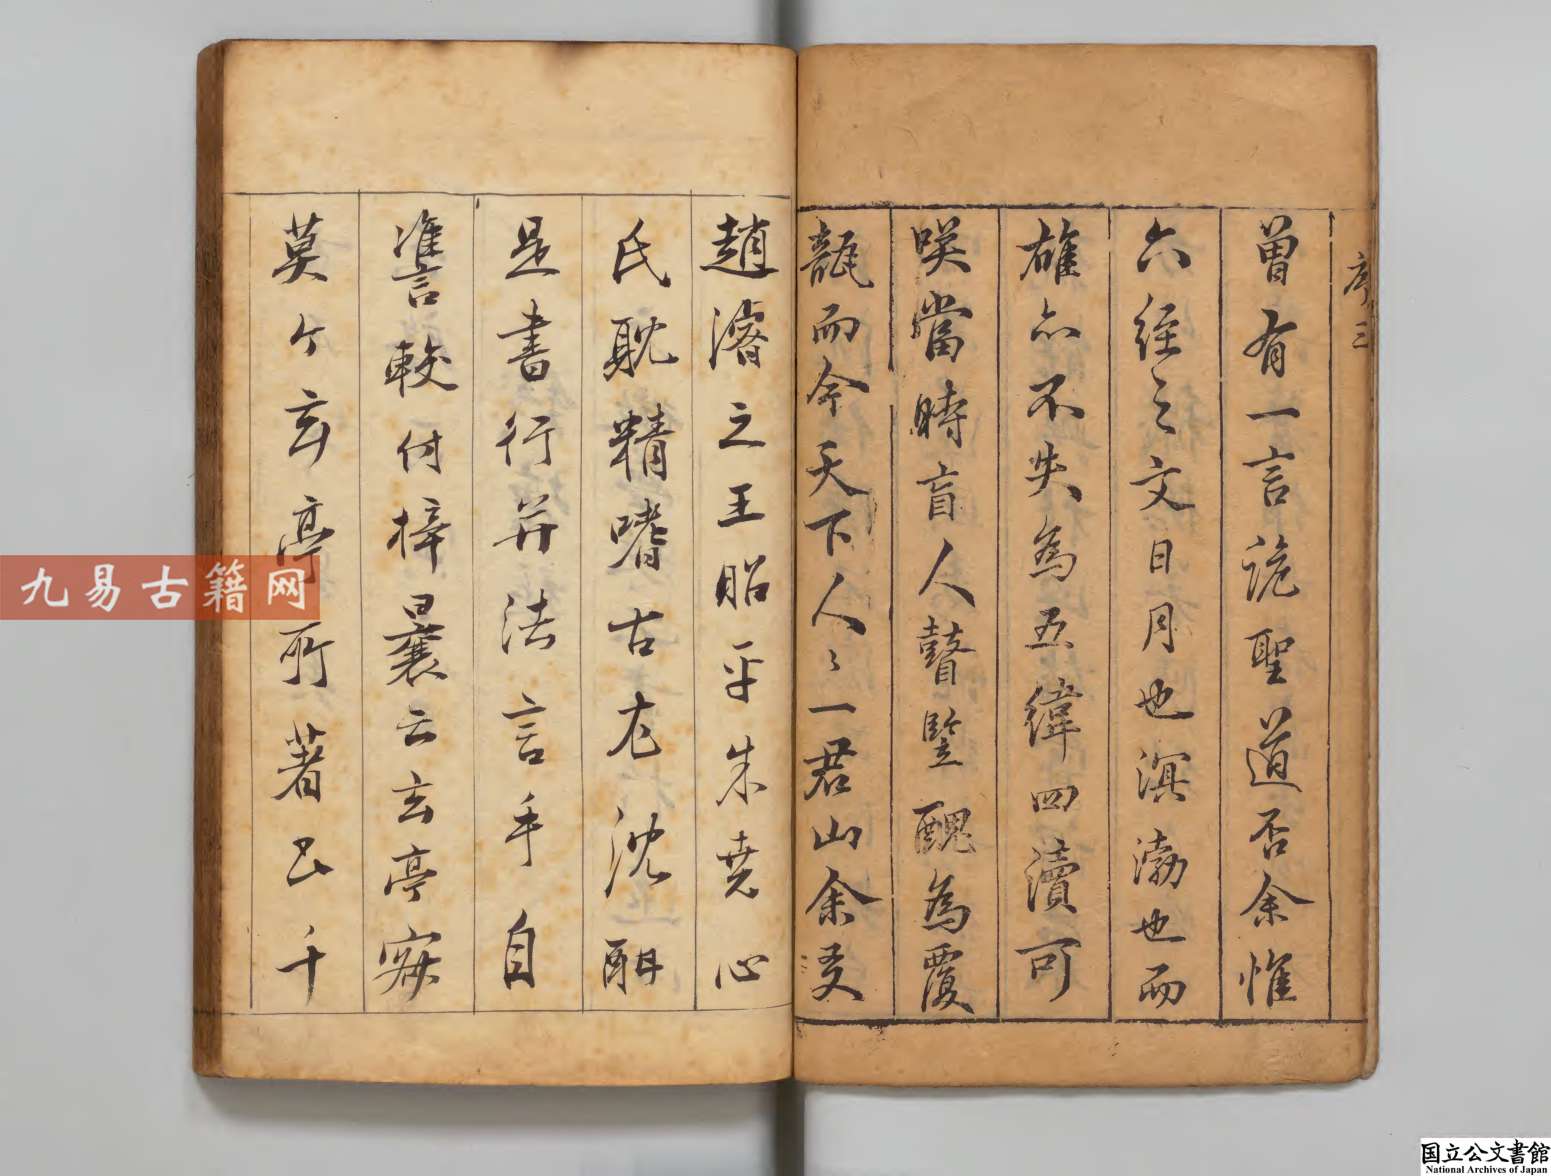 序 三
曾有一言詭聖道否余惟
六經之文日月也溟渤也而
雄亦不失為五緯四瀆可
咲當時盲人瞽豎醜為覆
瓿而今天下人〻一君山余友
趙濬之王貽平朱堯心
氏耽精嗜古尤沈酣
是書行并法言手自
讐較付梓曩云玄亭寂
莫今玄亭所著已千
九易古籍网
国立公文書館
National Archives of Japan